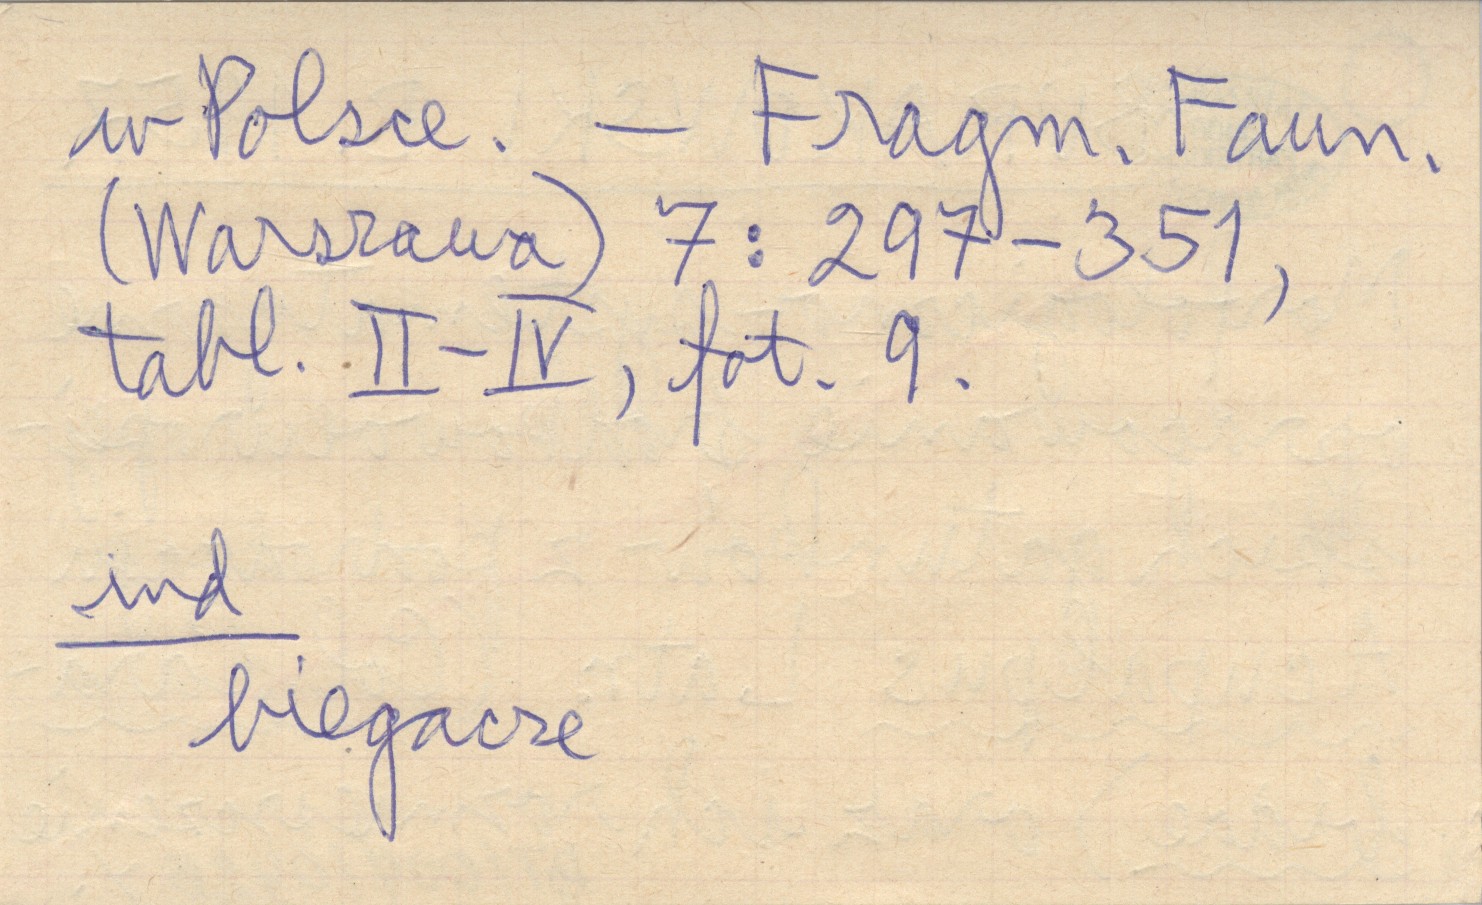 w Polsce. — Fragm. Faun.
(Warszawa) 7: 297-351,
tabl. II-IV, fot. 9.
ind
biegacze